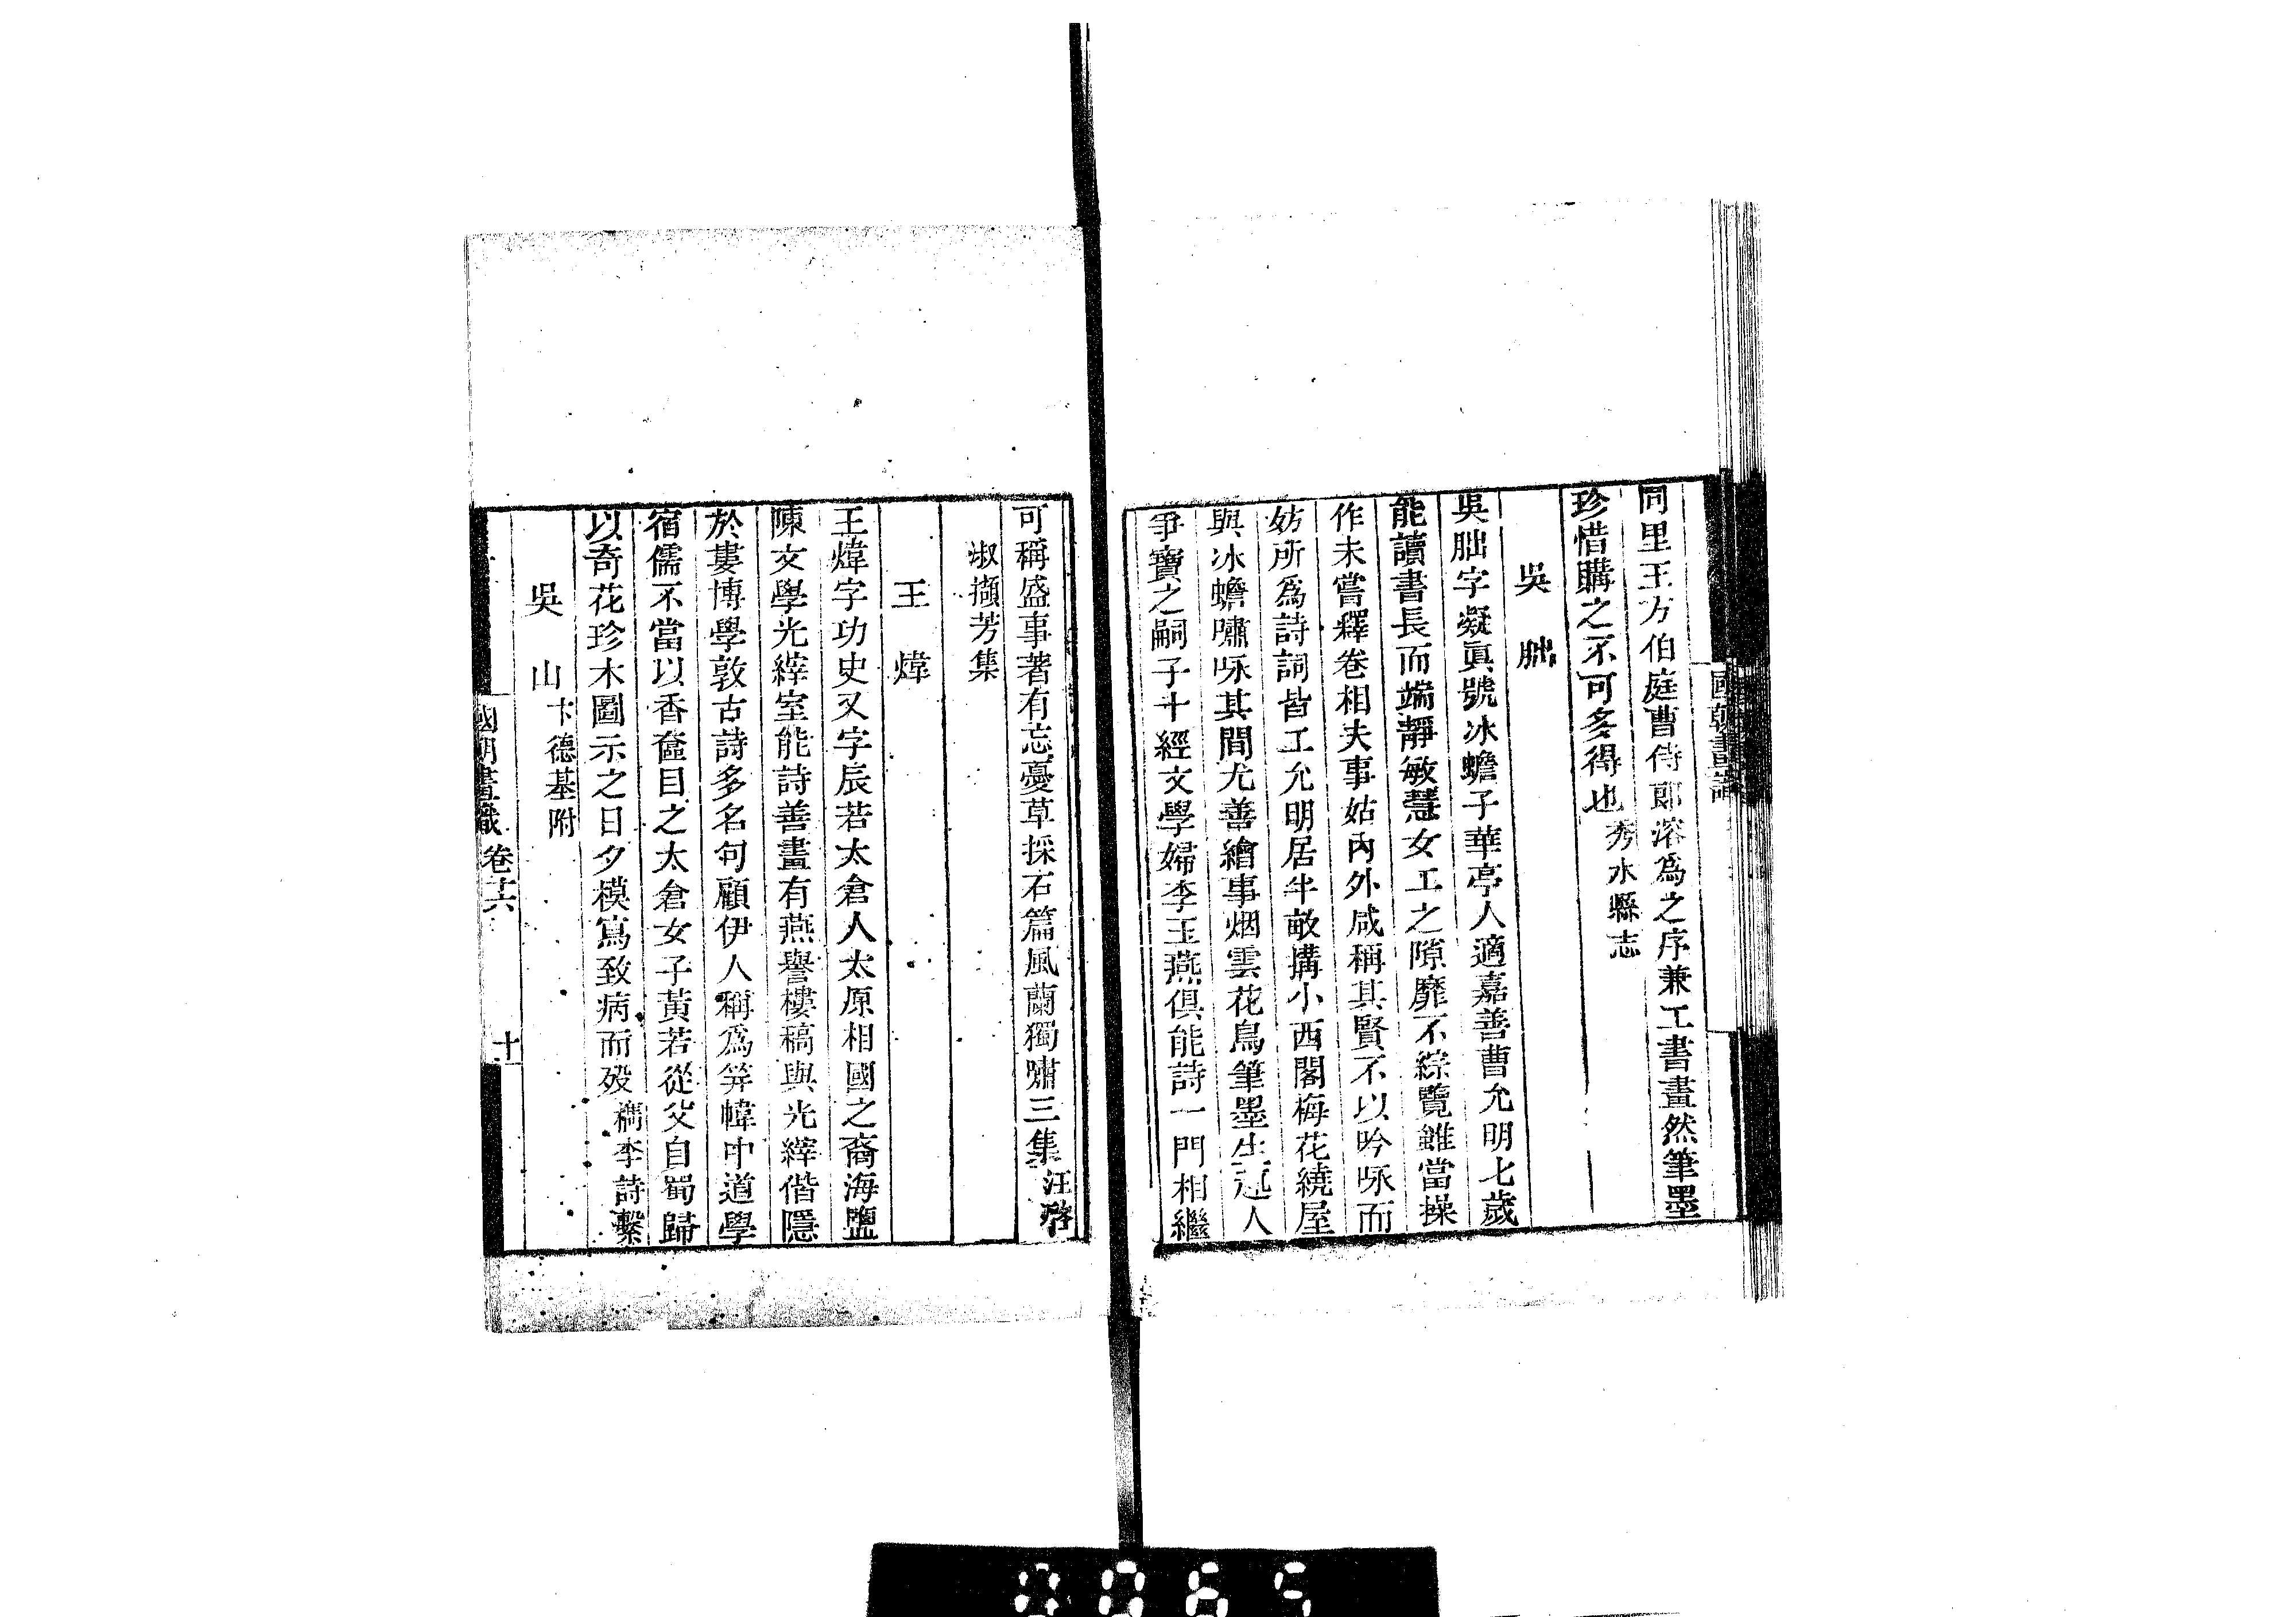 國朝畫識
同里王方伯庭曹侍郎溶爲之序兼工書畫然筆墨
珍惜購之不可多得也秀水縣志
吳朏
吳朏字凝眞號冰蟾子華亭人適嘉善曹允明七歲
能讀書長而端靜敏慧女工之隙靡不綜覽雖當操
作未嘗釋卷相夫事姑內外咸稱其賢不以吟咏而
妨所爲詩詞皆工允明居半畝搆小西閣梅花繞屋
與冰蟾嘯咏其間尤善繪事烟雲花鳥筆墨生
人
爭寶之嗣子十經文學婦李玉燕俱能詩一門相繼
可稱盛事著有忘憂草採石篇風蘭獨嘯三集汪啓
淑擷芳集
王煒
王煒字功史又字辰若太倉人太原相國之裔海鹽
陳文學光縡室能詩善畫有燕譽樓稿與光縡偕隱
於婁博學敦古詩多名句顧伊人稱爲笄幃中道學
宿儒不當以香奩目之太倉女子黃若從父自蜀歸
以奇花珍木圖示之日夕模寫致病而歿檇李詩繫
吳山卞德基附
國朝畫識 卷十六 十一
0065